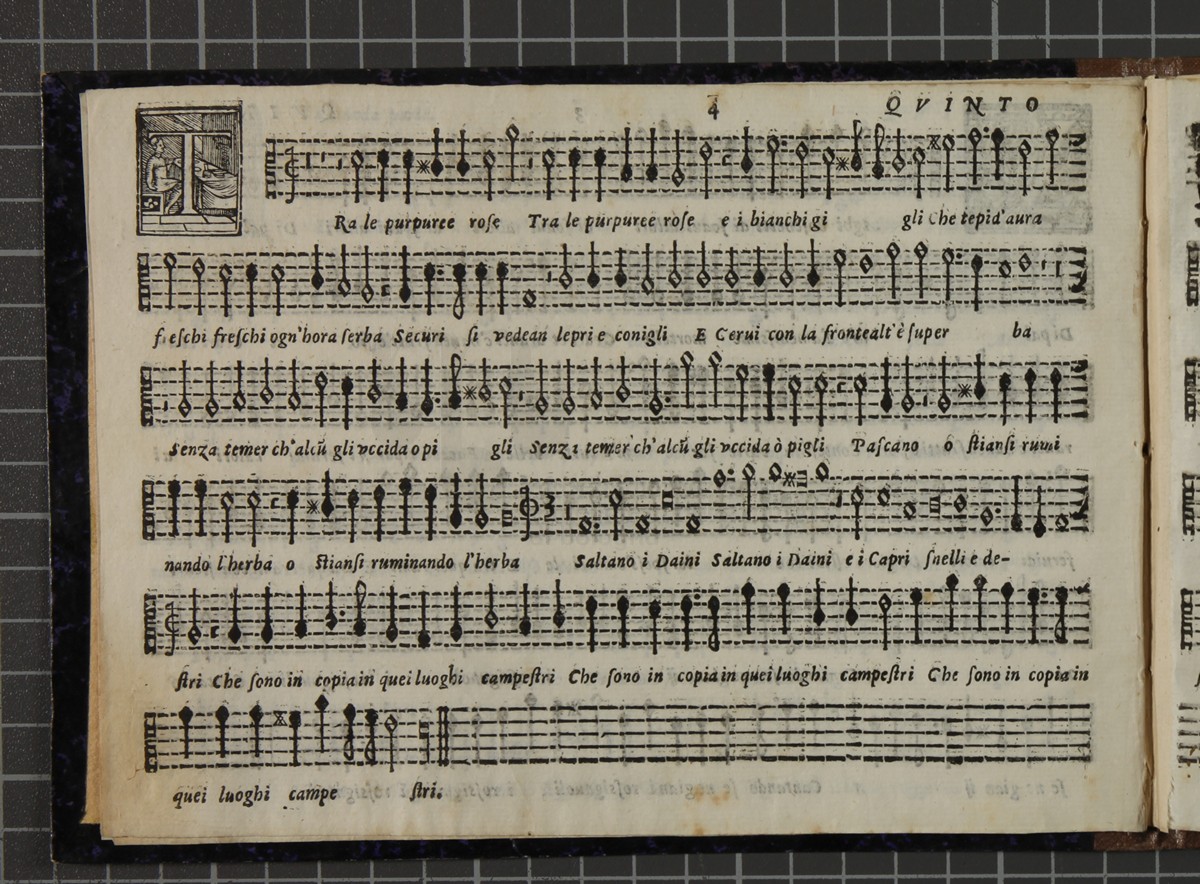 4 QVINTO
TRa le purpuree rose Tra le purpuree rose e i bianchi gi gli Che tepid'aura
freschi freschi ogn'hora serba Securi si vedean lepri e conigli E Cerui con la frontealt'è super ba
Senza temer ch'alcũ gli vccida o pi gli Senza temer ch'alcũ gli vccida ò pigli Pascano o stiansi rumi
nando l'herba o Stiansi ruminando l'herba Saltano i Daini Saltano i Daini e i Capri snelli e de-
stri Che sono in copia in quei luoghi campestri Che sono in copia in quei luoghi campestri Che sono in copia in
quei luoghi campe stri.